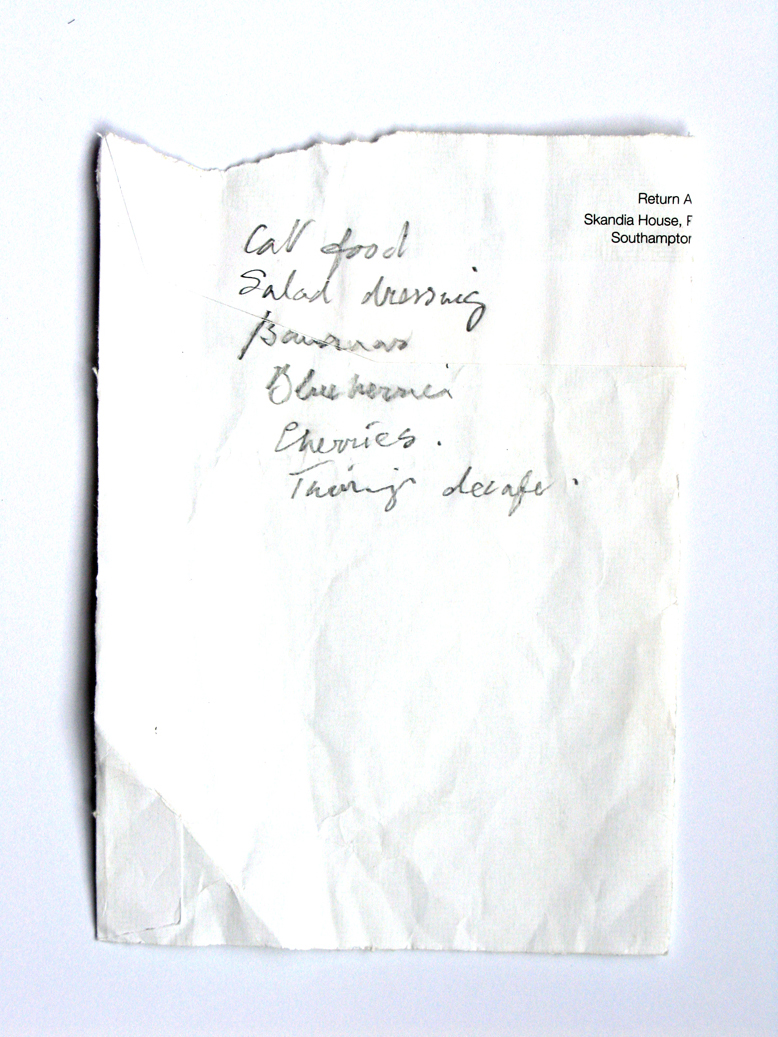 Return A
Skandia House, P
Southampton
Cat food
Salad dressing
Bananas
Blueberries
Cherries.
Twinings decafe.